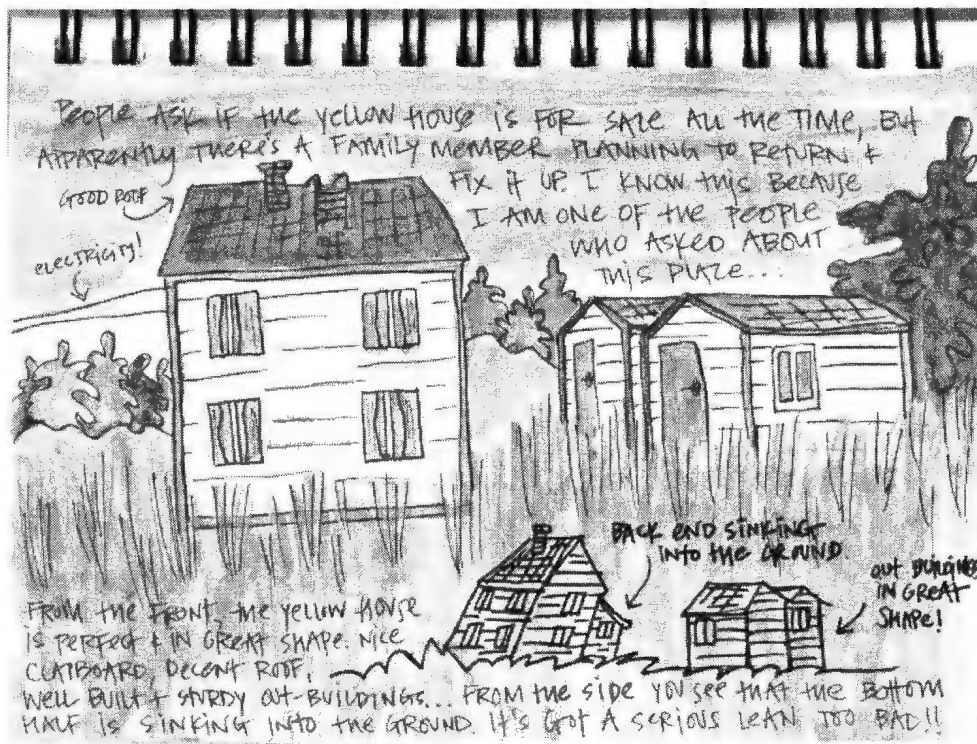 PEOPLE ASK IF the YELLOW HOUSE IS FOR SALE ALL the TIME, BUT
APPARENTLY THERE'S A FAMILY MEMBER PLANNING TO RETURN +
FIX it UP. I KNOW this BECAUSE
I AM ONE OF the PEOPLE
WHO ASKED ABOUT
this PLACE...
GOOD ROOF
eLECTRICITY!
BACK END SINKING
INTO the GROUND
OUT BUILDINGS
IN GREAT
SHAPE!
FROM the FRONT, the YELLOW HOUSE
IS PERFECT + IN GREAT SHAPE. NICE
CLAPBOARD, DECENT ROOF,
WELL BUILT + STURDY OUT-BUILDINGS... FROM the SIDE YOU SEE that the BOTTOM
HALF IS SINKING INTO the GROUND. IT'S GOT A SERIOUS LEAN. TOO BAD!!